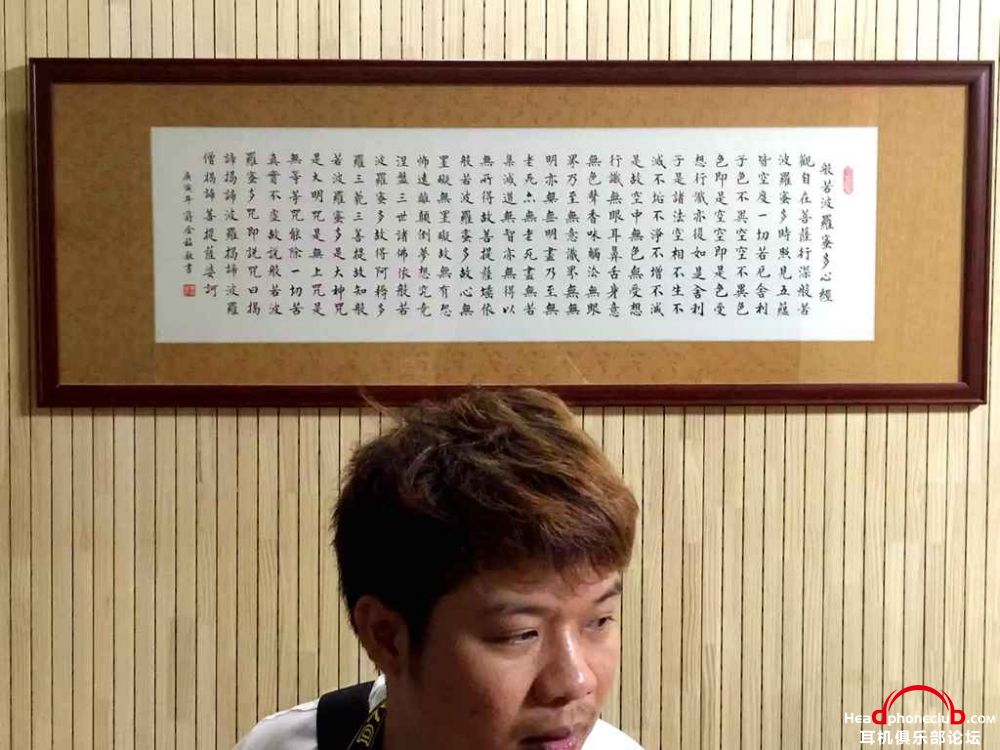 般若波羅蜜多心經
觀自在菩薩行深般若
波羅蜜多時照見五蘊
皆空度一切苦厄舍利
子色不異空空不異色
色即是空空即是色受
想行識亦復如是舍利
子是諸法空相不生不
滅不垢不淨不增不減
是故空中無色無受想
行識無眼耳鼻舌身意
無色聲香味觸法無眼
界乃至無意識界無無
明亦無無明盡乃至無
老死亦無老死盡無苦
集滅道無智亦無得以
無所得故菩提薩埵依
般若波羅蜜多故心無
罣礙無罣礙故無有恐
怖遠離顛倒夢想究竟
涅盤三世諸佛依般若
波羅蜜多故得阿耨多
羅三藐三菩提故知般
若波羅蜜多是大神咒
是大明咒是無上咒是
無等等咒能除一切苦
真實不虛故說般若波
羅蜜多咒即說咒曰揭
諦揭諦波羅揭諦波羅
僧揭諦菩提薩婆訶
庚寅年 敬書
Headphoneclub.com
耳机俱乐部论坛